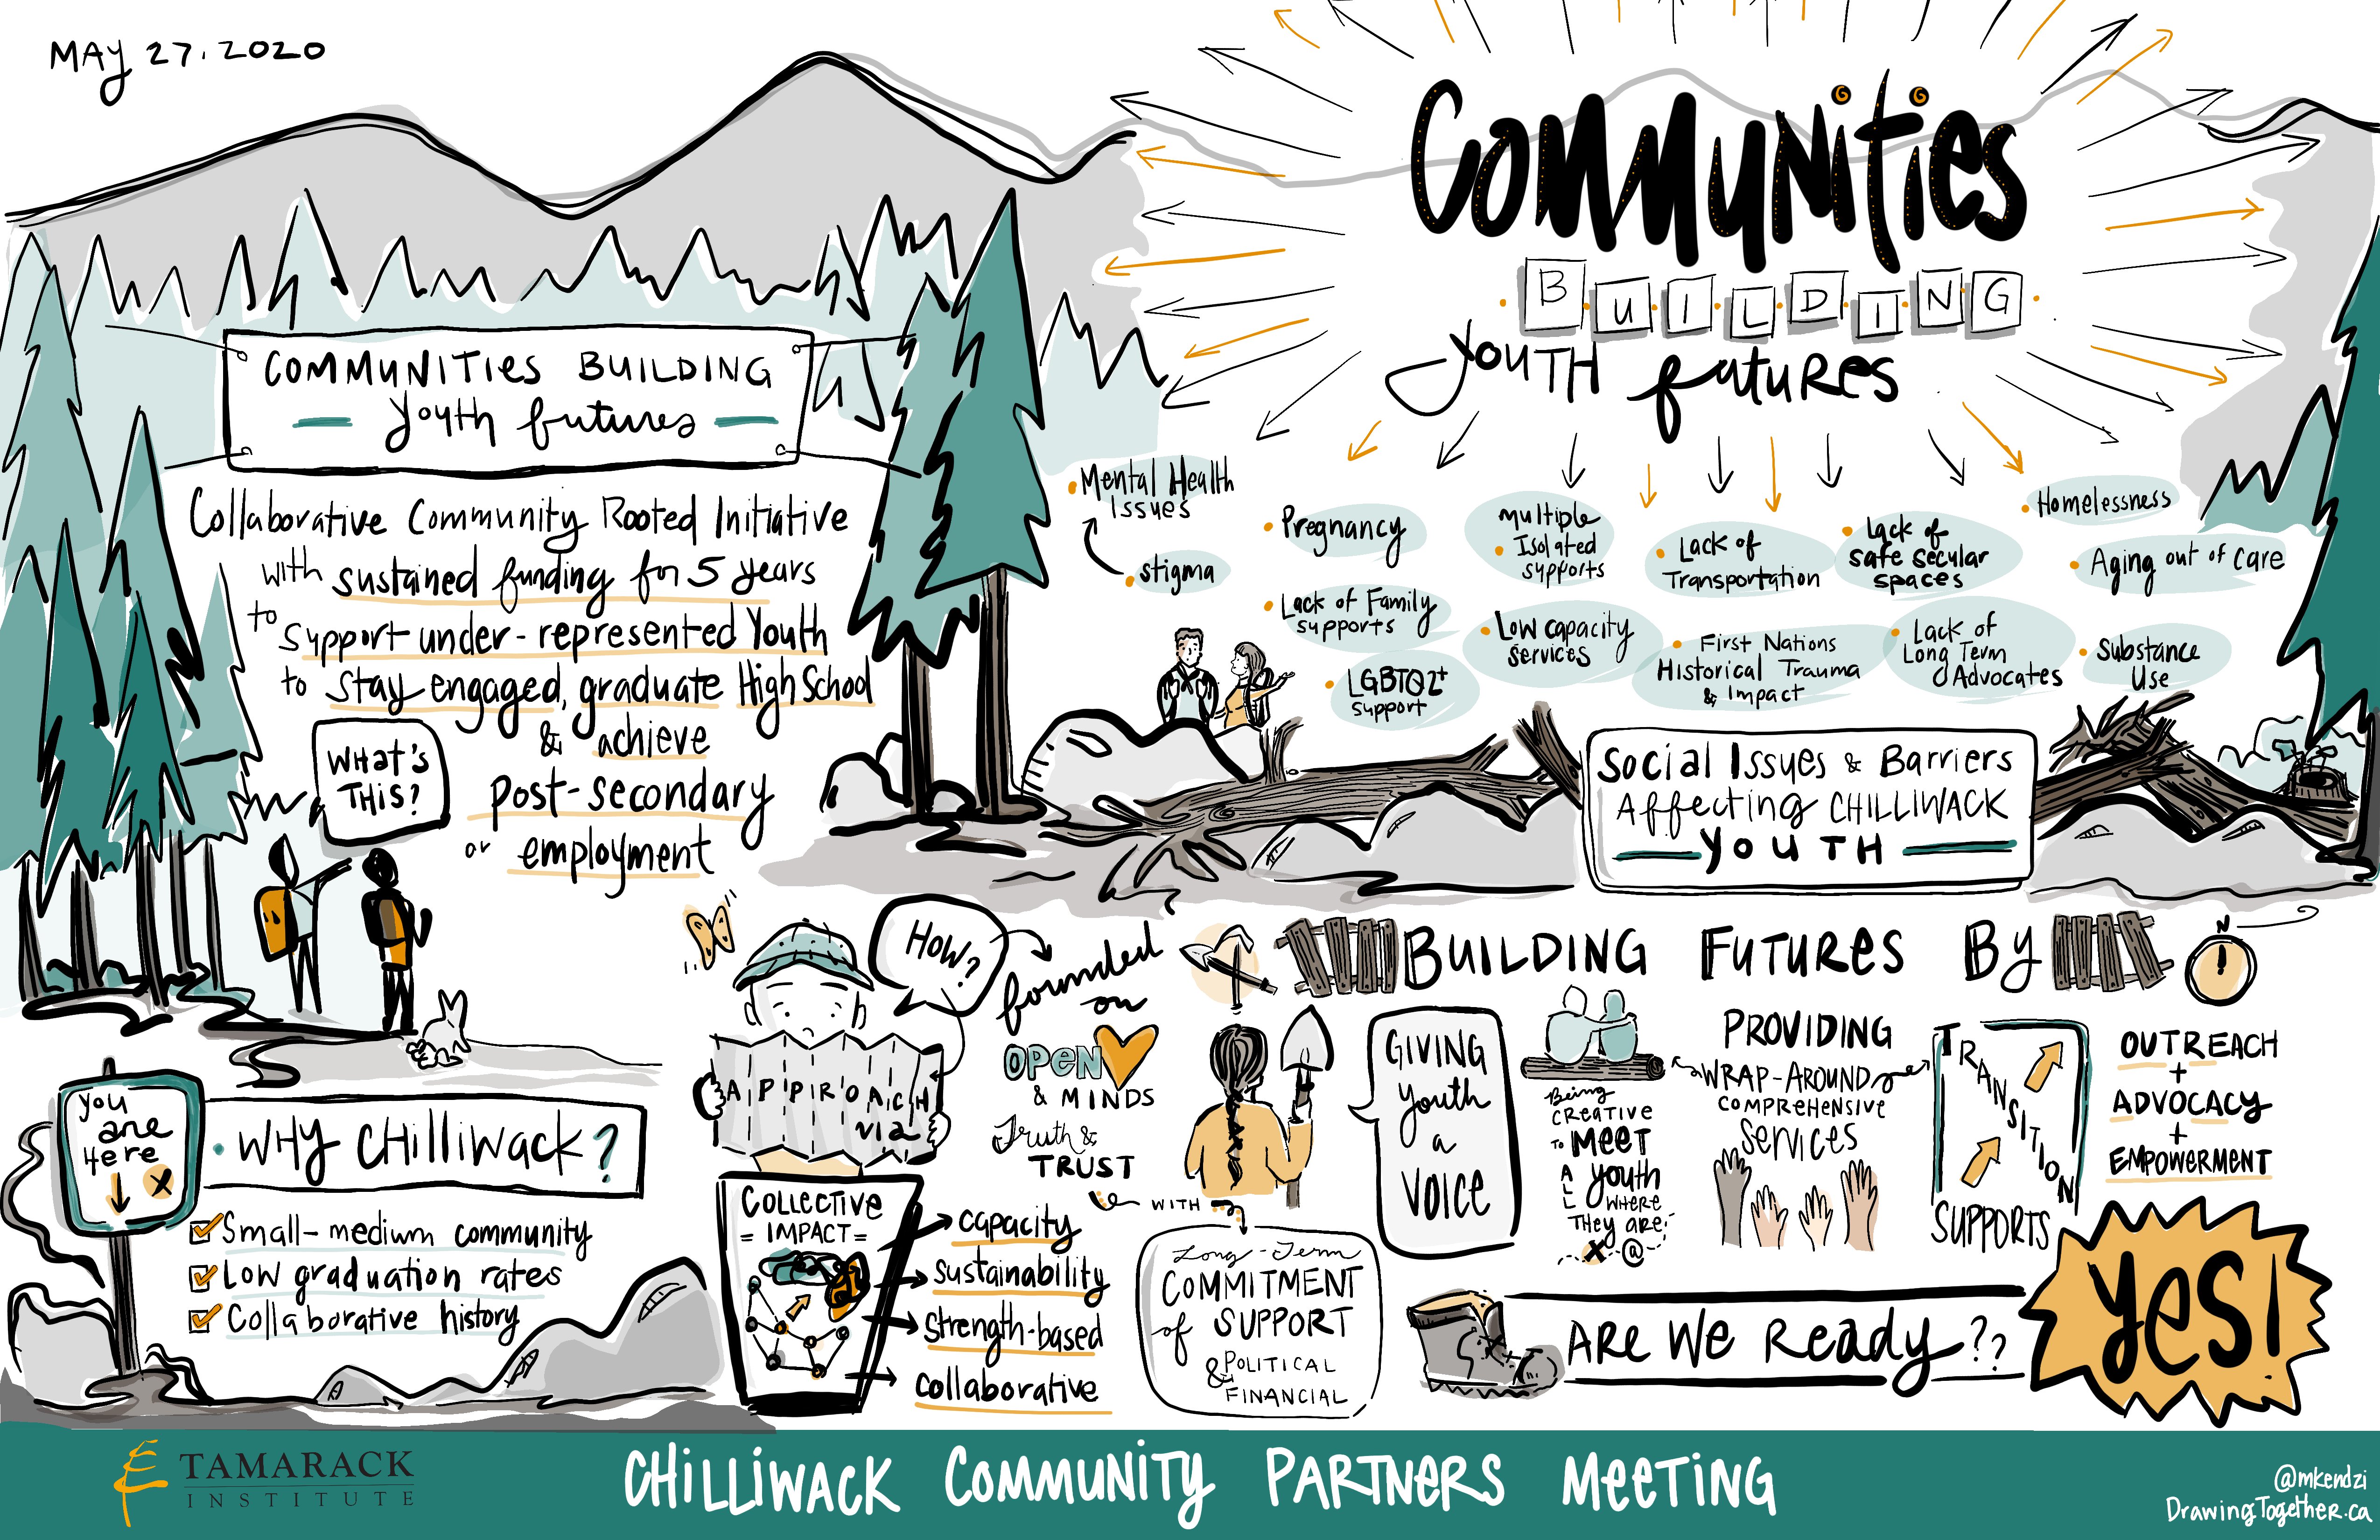 MAY 27, 2020
Communities
BUILDING
YOUTH futures
COMMUNITIES BUILDING
Youth futures
Collaborative Community Rooted Initiative
with sustained funding for 5 years
to support under-represented Youth
to stay engaged, graduate High School
& achieve
post-secondary
or employment
WHAT'S
THIS?
Mental Health
Issues
Stigma
Pregnancy
Lack of Family
supports
LGBTQ2+
support
Multiple
Isolated
supports
Low capacity
services
Lack of
Transportation
First Nations
Historical Trauma
& Impact
Lack of
safe secular
spaces
Lack of
Long Term
Advocates
Homelessness
Aging out of care
Substance
Use
Social Issues & Barriers
Affecting CHILLIWACK
YOUTH
You
are
Here
X
WHY CHilliwack?
Small-medium community
Low graduation rates
Collaborative history
HOW?
APPROACH
via
COLLECTIVE
= IMPACT =
capacity
sustainability
strength-based
collaborative
founded
on
OPEN
& MINDS
Truth &
TRUST
WITH
Long-Term
COMMITMENT
of SUPPORT
& POLITICAL
FINANCIAL
BUILDING FUTURES BY
N
GIVING
Youth
a
VOICE
Being
CREATIVE
To MEET
ALL Youth
WHERE
THEY ARE
X @
PROVIDING
WRAP-AROUND
COMPREHENSIVE
SERVICES
TRANSITION
SUPPORTS
OUTREACH
+
ADVOCACY
+
EMPOWERMENT
ARE WE Ready??
YES!
TAMARACK
INSTITUTE
CHILLIWACK COMMUNITY PARTNERS MEETING
@mkendzi
DrawingTogether.ca